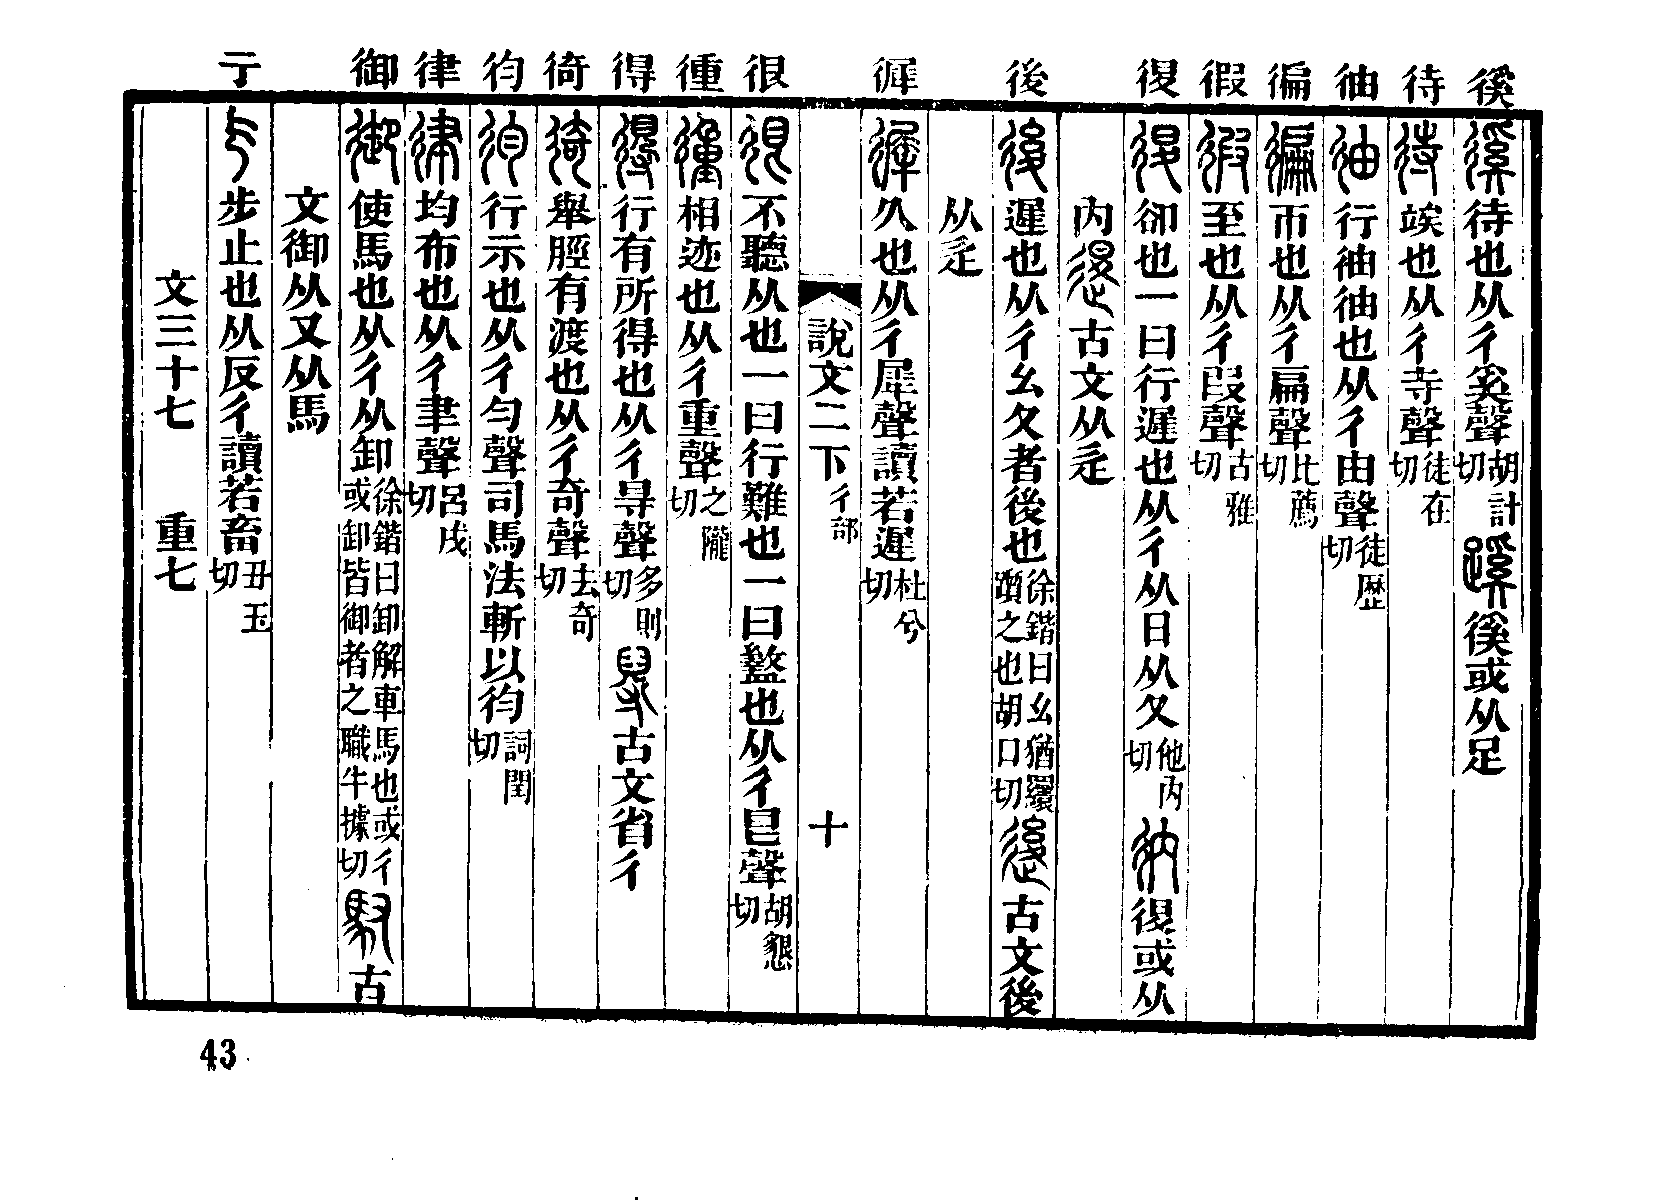 徯 待 徲 徧 徦 復 後 徲 很 徸 得 徛 袀 律 御 亍
徯待也从彳奚聲胡計切蹊徯或从足
待竢也从彳寺聲徒在切
䌷行䌷䌷也从彳由聲徒歷切
徧帀也从彳扁聲比薦切
徦至也从彳叚聲古雅切
㣟卻也一曰行遲也从彳从日从夊他内切 㣟或从
内 古文从辵
後遲也从彳幺夊者後也徐鍇曰幺猶䌸躓之也胡口切 古文後
从辵
徲久也从彳犀聲讀若遲杜兮切
說文二下 彳部 十
很不聽从也一曰行難也一曰盭也从彳㫐聲胡懇切
徸相迹也从彳重聲之隴切
得行有所得也从彳㝵聲多則切 㝵古文省彳
徛舉脛有渡也从彳奇聲去奇切
袀行示也从彳勻聲司馬法斬以袀詞閏切
律均布也从彳聿聲呂戌切
御使馬也从彳从卸徐鍇曰卸解車馬也或彳或卸皆御者之職牛據切 馭古
文御从又从馬
亍步止也从反彳讀若畜丑玉切
文三十七 重七
43